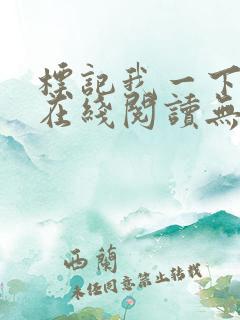 標記我一下
在綫閱讀無
西蘭
未经同意禁止转载